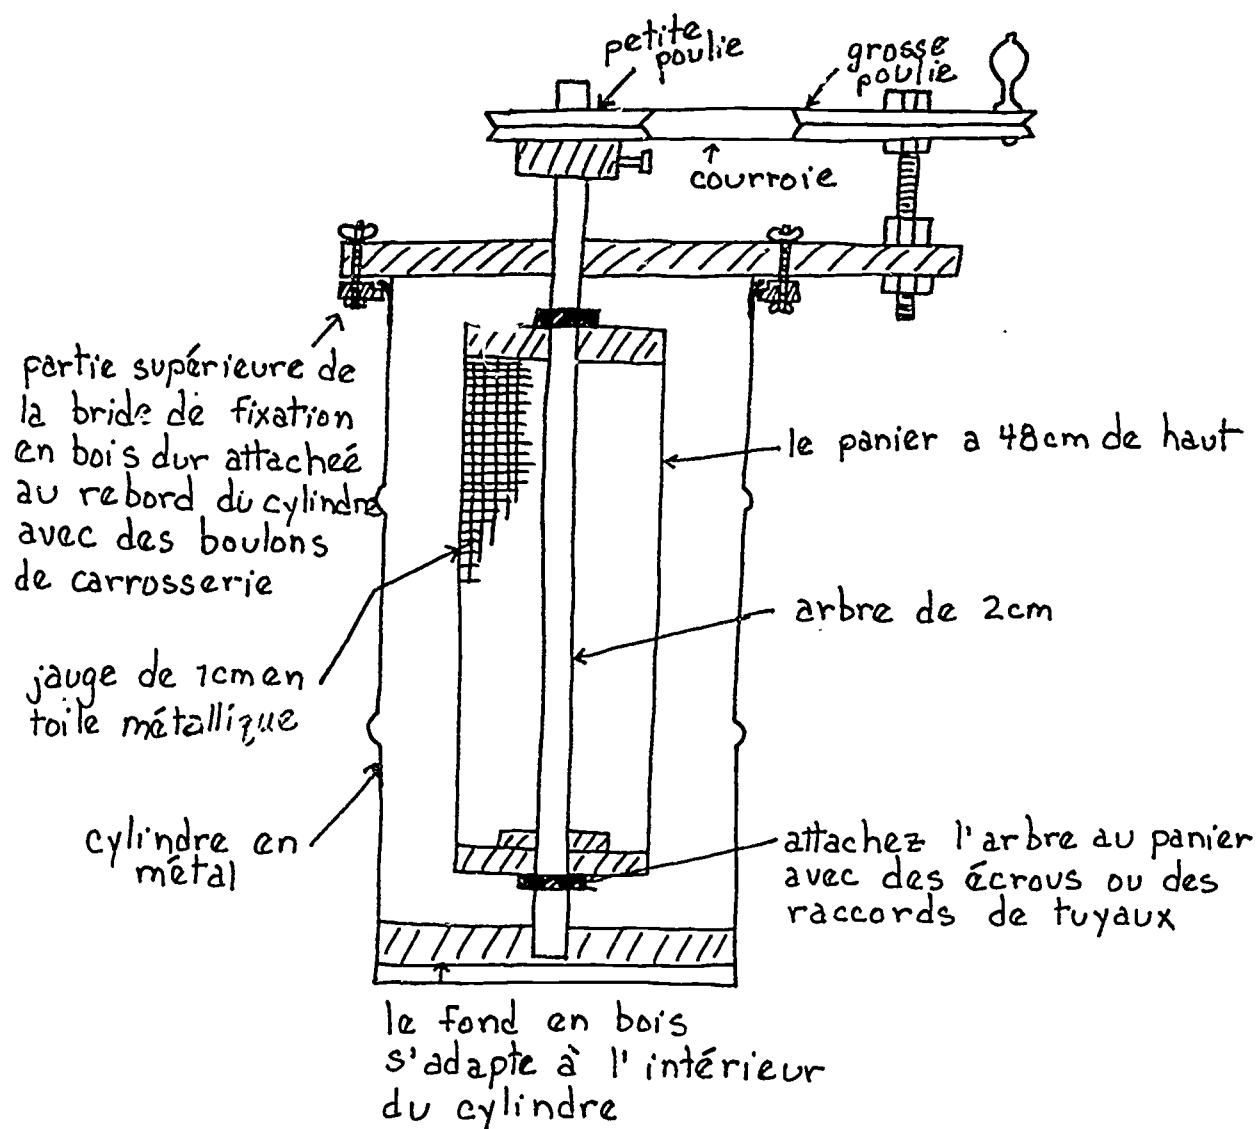 petite
poulie
grosse
poulie
courroie
partie supérieure de
la bride de fixation
en bois dur attacheé
au rebord du cylindre
avec des boulons
de carrosserie
le panier a 48cm de haut
arbre de 2cm
jauge de 1cm en
toile métallique
cylindre en
métal
attachez l'arbre au panier
avec des écrous ou des
raccords de tuyaux
le fond en bois
s'adapte à l'intérieur
du cylindre